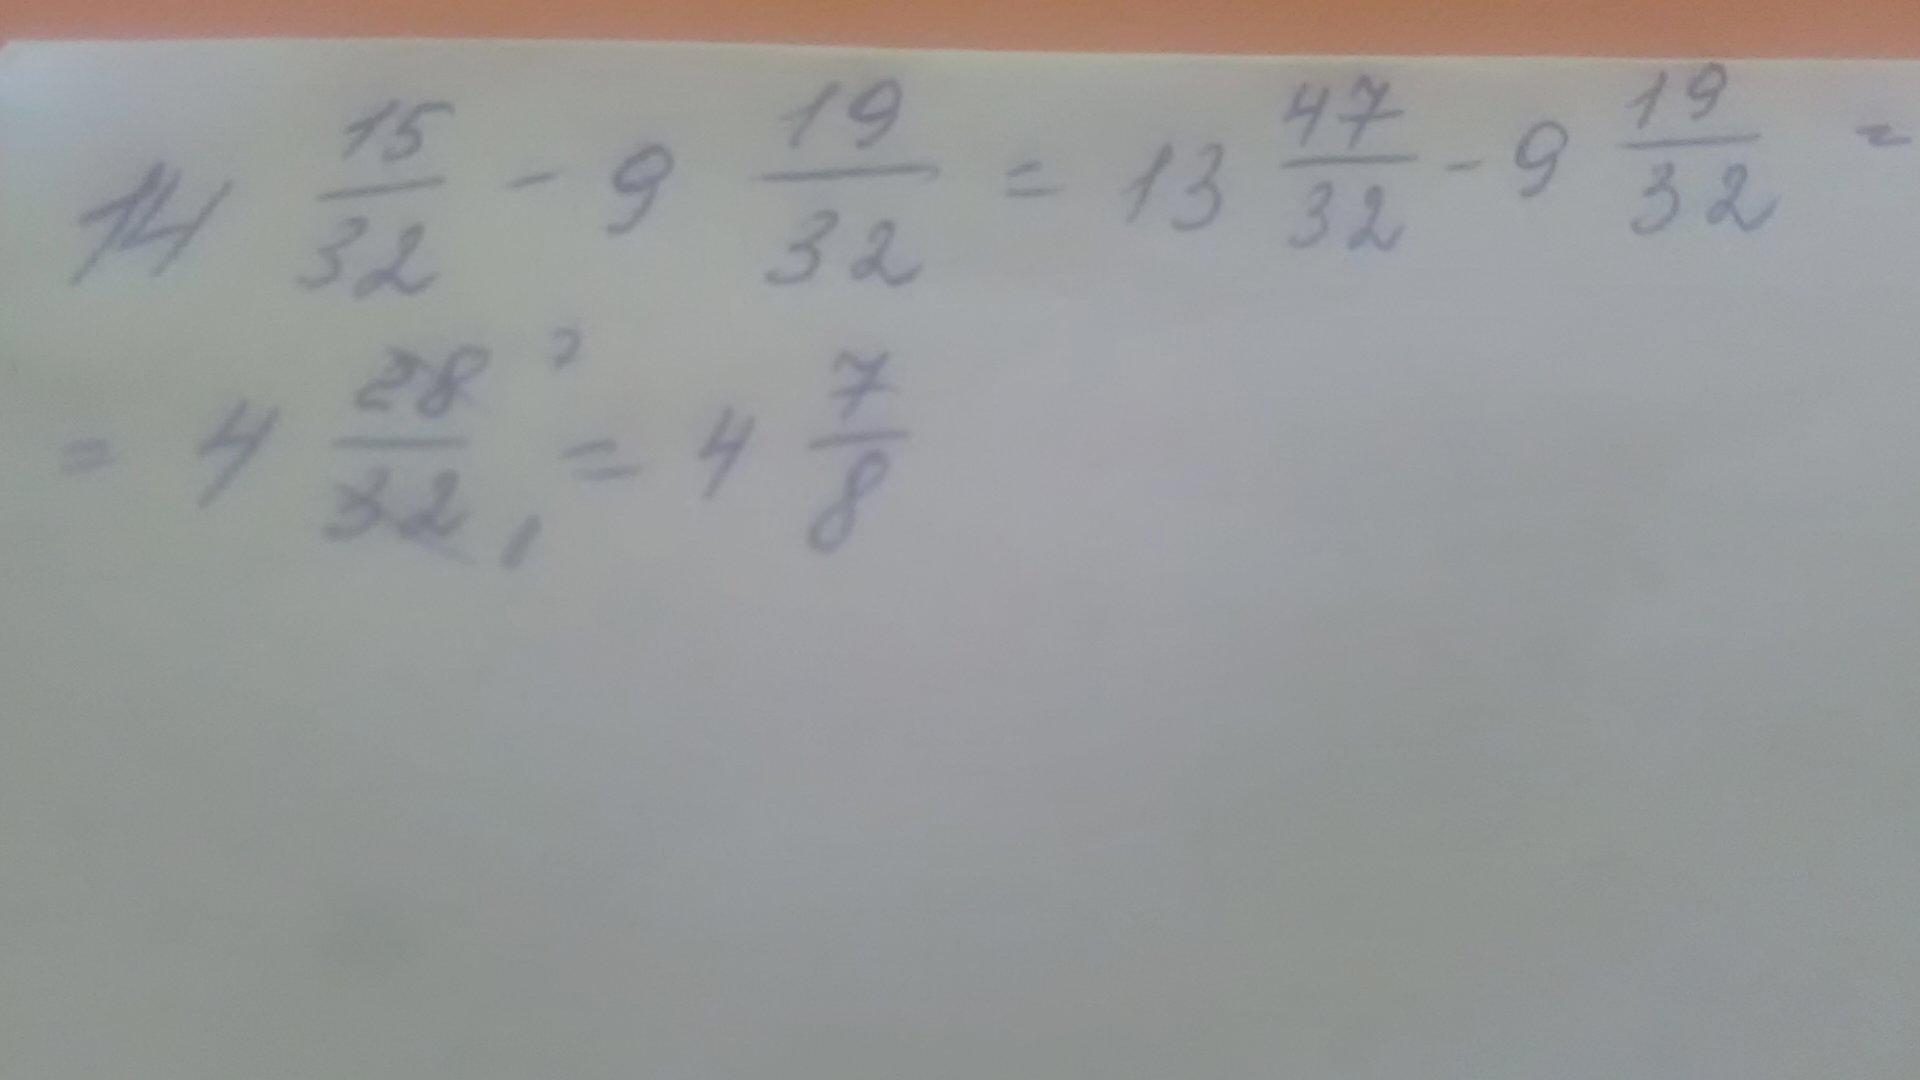 14 15/32 - 9 19/32 = 13 47/32 - 9 19/32 =
= 4 28/32 = 4 7/8